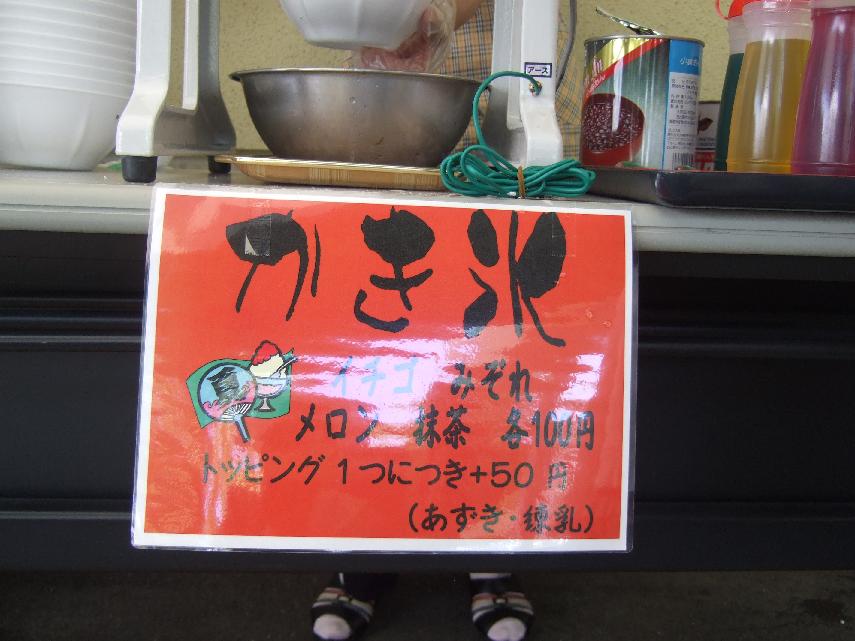 アース
かき氷
イチゴ みぞれ
メロン 抹茶 各100円
トッピング1つにつき+50円
(あずき・練乳)